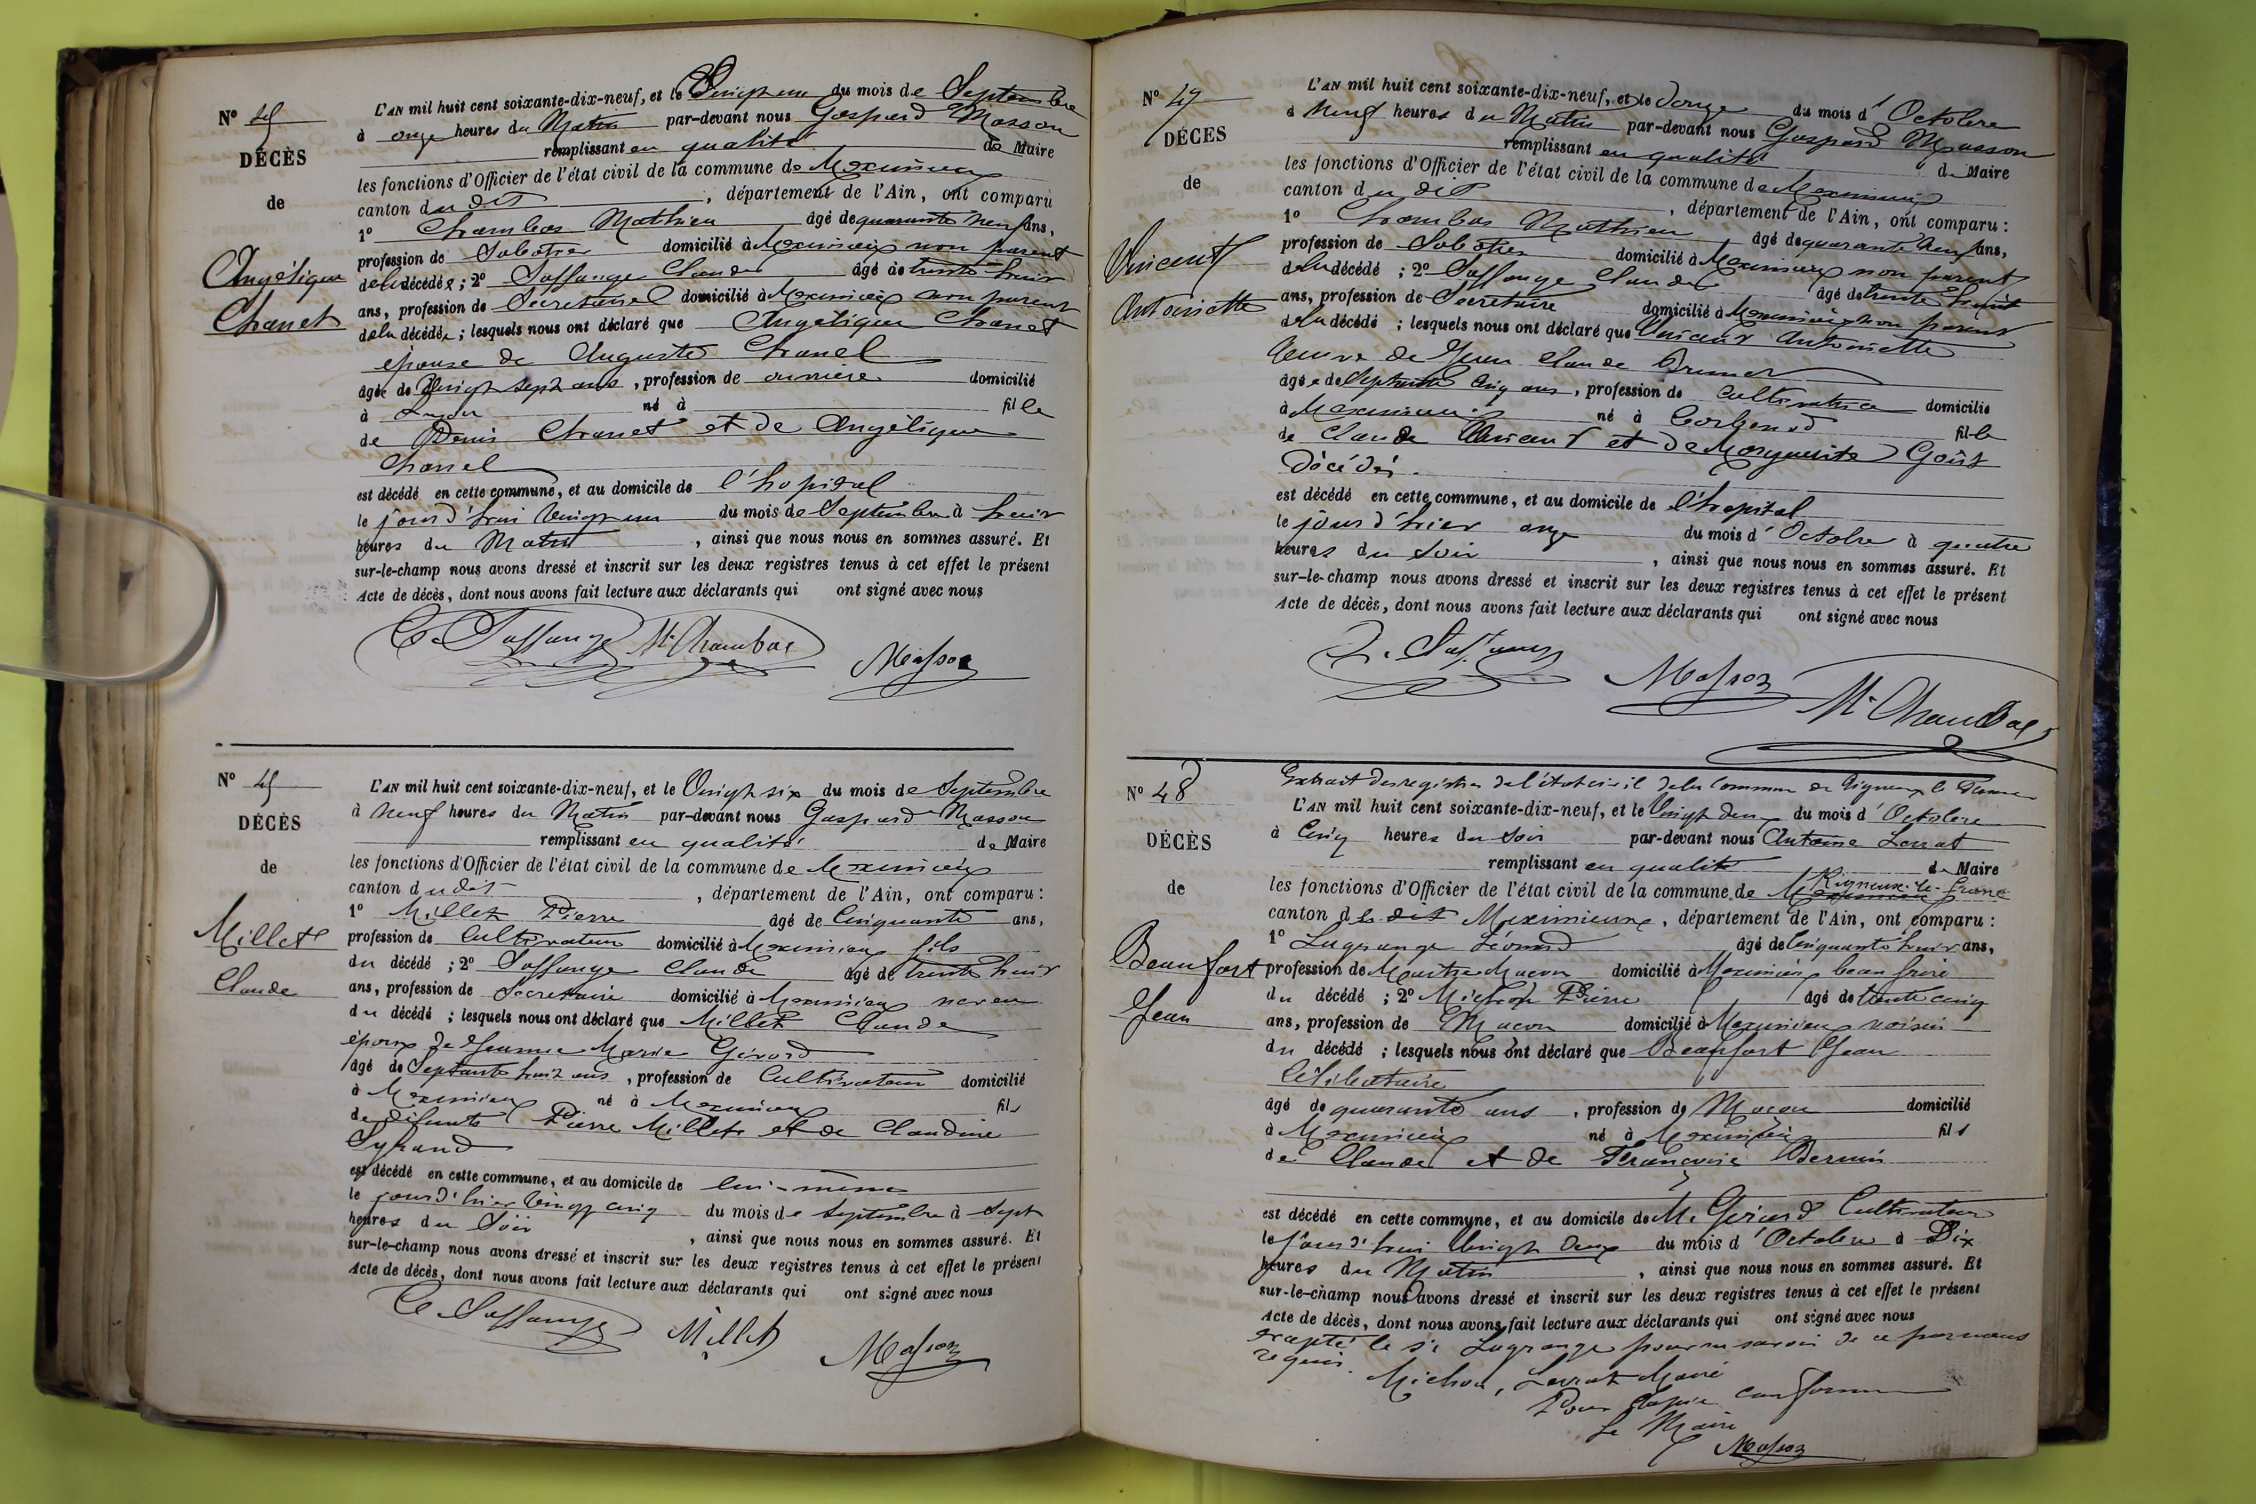 N° 45
DÉCÈS
de
Angélique
Chanel
L'AN mil huit cent soixante-dix-neuf, et le Vingt un du mois de Septembre
à onze heures du Matin par-devant nous Gaspard Masson
remplissant en qualité de Maire
les fonctions d'Officier de l'état civil de la commune de Meximieux
canton du dit, département de l'Ain, ont comparu
1° Chambas Mathieu âgé de quarante neuf ans,
profession de Sabotier domicilié à Meximieux non parent
de la décédée; 2° Saffange Claude âgé de trente huit
ans, profession de Secretaire domicilié à Meximieux non parent
de la décédée; lesquels nous ont déclaré que Angélique Chanel
épouse de Auguste Chanel
âgée de Vingt sept ans, profession de ouvrière domicilié
à né à fille
de Denis Chanel et de Angélique
Chanel
est décédé en cette commune, et au domicile de l'hopital
le jour d'hui Vingt un du mois de Septembre à huit
heures du Matin, ainsi que nous nous en sommes assuré. Et
sur-le-champ nous avons dressé et inscrit sur les deux registres tenus à cet effet le présent
Acte de décès, dont nous avons fait lecture aux déclarants qui ont signé avec nous
C. Saffange M. Chambas Masson
N° 45
DÉCÈS
de
Millet
Claude
L'AN mil huit cent soixante-dix-neuf, et le Vingt six du mois de Septembre
à neuf heures du Matin par-devant nous Gaspard Masson
remplissant en qualité de Maire
les fonctions d'Officier de l'état civil de la commune de Meximieux
canton du dit, département de l'Ain, ont comparu:
1° Millet Pierre âgé de Cinquante ans,
profession de Cultivateur domicilié à Meximieux fils
du décédé; 2° Saffange Claude âgé de trente huit
ans, profession de Secretaire domicilié à Meximieux neveu
du décédé; lesquels nous ont déclaré que Millet Claude
époux de Jeanne Marie Girard
âgé de Septante huit ans, profession de Cultivateur domicilié
à Meximieux né à Meximieux fils
de défunts Pierre Millet et de Claudine
est décédé en cette commune, et au domicile de lui-même
le jour d'hier Vingt cinq du mois de Septembre à Sept
heures du Soir, ainsi que nous nous en sommes assuré. Et
sur-le-champ nous avons dressé et inscrit sur les deux registres tenus à cet effet le présent
Acte de décès, dont nous avons fait lecture aux déclarants qui ont signé avec nous
C. Saffange Millet Masson
N° 47
DÉCES
de
Vincent
Antoinette
L'AN mil huit cent soixante-dix-neuf, et le douze du mois d'Octobre
à Neuf heures du Matin par-devant nous Gaspard Masson
remplissant en qualité de Maire
les fonctions d'Officier de l'état civil de la commune de Meximieux
canton du dit, département de l'Ain, ont comparu:
1° Chambas Mathieu âgé de quarante neuf ans,
profession de Sabotier domicilié à Meximieux non parent
de la décédé; 2° Saffange Claude âgé de trente huit
ans, profession de Secretaire domicilié à Meximieux non parent
de la décédé; lesquels nous ont déclaré que Vincent Antoinette
Veuve de Jean Claude Brunet
âgée de Septante Cinq ans, profession de Cultivatrice domicilié
à Meximieux né à Corbenod fille
de Claude Vincent et de Marguerite Goût
Décédés.
est décédé en cette commune, et au domicile de l'hopital
le jour d'hier onze du mois d'Octobre à quatre
heures du Soir, ainsi que nous nous en sommes assuré. Et
sur-le-champ nous avons dressé et inscrit sur les deux registres tenus à cet effet le présent
Acte de décès, dont nous avons fait lecture aux déclarants qui ont signé avec nous
C. Saffange Masson M. Chambas
N° 48
DÉCÈS
de
Beaufort
Jean
Extrait des registres de l'état civil de la Commune de Rigneux le Franc
L'AN mil huit cent soixante-dix-neuf, et le Vingt deux du mois d'Octobre
à Cinq heures du Soir par-devant nous Antoine Levrat
remplissant en qualité de Maire
les fonctions d'Officier de l'état civil de la commune de Rigneux-le-franc
canton de Meximieux, département de l'Ain, ont comparu:
1° Lagrange Léonard âgé de Cinquante huit ans,
profession de Maître Maçon domicilié à Meximieux beau frère
du décédé; 2° Michon Pierre âgé de trente cinq
ans, profession de Maçon domicilié à Meximieux voisin
du décédé; lesquels nous ont déclaré que Beaufort Jean
Célibataire
âgé de quarante ans, profession de Maçon domicilié
à Meximieux né à Meximieux fils
de Claude et de Françoise Bernin
est décédé en cette commune, et au domicile de M. Girard Cultivateur
le jour d'hui Vingt Deux du mois d'Octobre à Dix
heures du Matin, ainsi que nous nous en sommes assuré. Et
sur-le-champ nous avons dressé et inscrit sur les deux registres tenus à cet effet le présent
Acte de décès, dont nous avons fait lecture aux déclarants qui ont signé avec nous
excepté le sr Lagrange pour ne savoir de ce par nous
requis. Michon, Levrat Maire
Pour Copie conforme
Le Maire
Masson